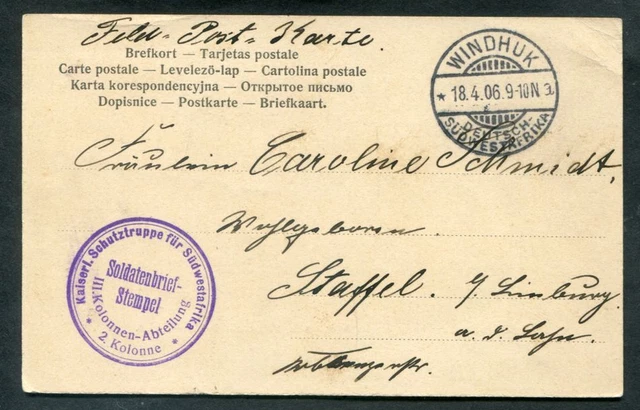 Feld-Post-Karte.
Brefkort — Tarjetas postale
Carte postale — Levelezö-lap — Cartolina postale
Karta korespondencyjna — Открытое письмо
Dopisnice — Postkarte — Briefkaart.
WINDHUK
* 18.4.06.9-10N a
DEUTSCH-
SÜDWESTAFRIKA
Fräulein Caroline Schmidt,
Wohlgeboren.
Staffel. b/ Limburg
a. d. Lahn.
Kaiserl. Schutztruppe für Südwestafrika
Soldatenbrief-
Stempel
III. Kolonnen-Abteilung
* 2 Kolonne *